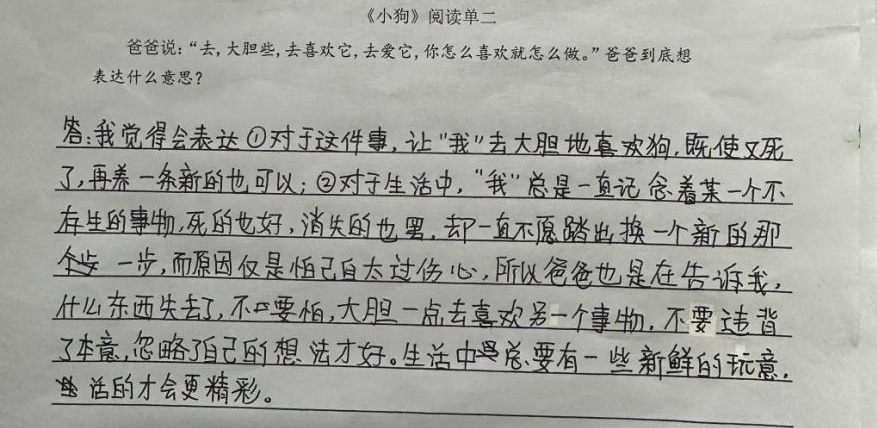 《小狗》阅读单二
爸爸说：“去，大胆些，去喜欢它，去爱它，你怎么喜欢就怎么做。”爸爸到底想
表达什么意思？
答：我觉得会表达①对于这件事，让“我”去大胆地喜欢狗，既使又死
了，再养一条新的也可以；②对于生活中，“我”总是一直记念着某一个不
存生的事物，死的也好，消失的也罢，却一直不愿踏出换一个新的那
一步，而原因仅是怕己自太过伤心，所以爸爸也是在告诉我，
什么东西失去了，不要怕，大胆一点去喜欢另一个事物，不要违背
了本意，忽略了自己的想法才好。生活中总要有一些新鲜的玩意，
活的才会更精彩。